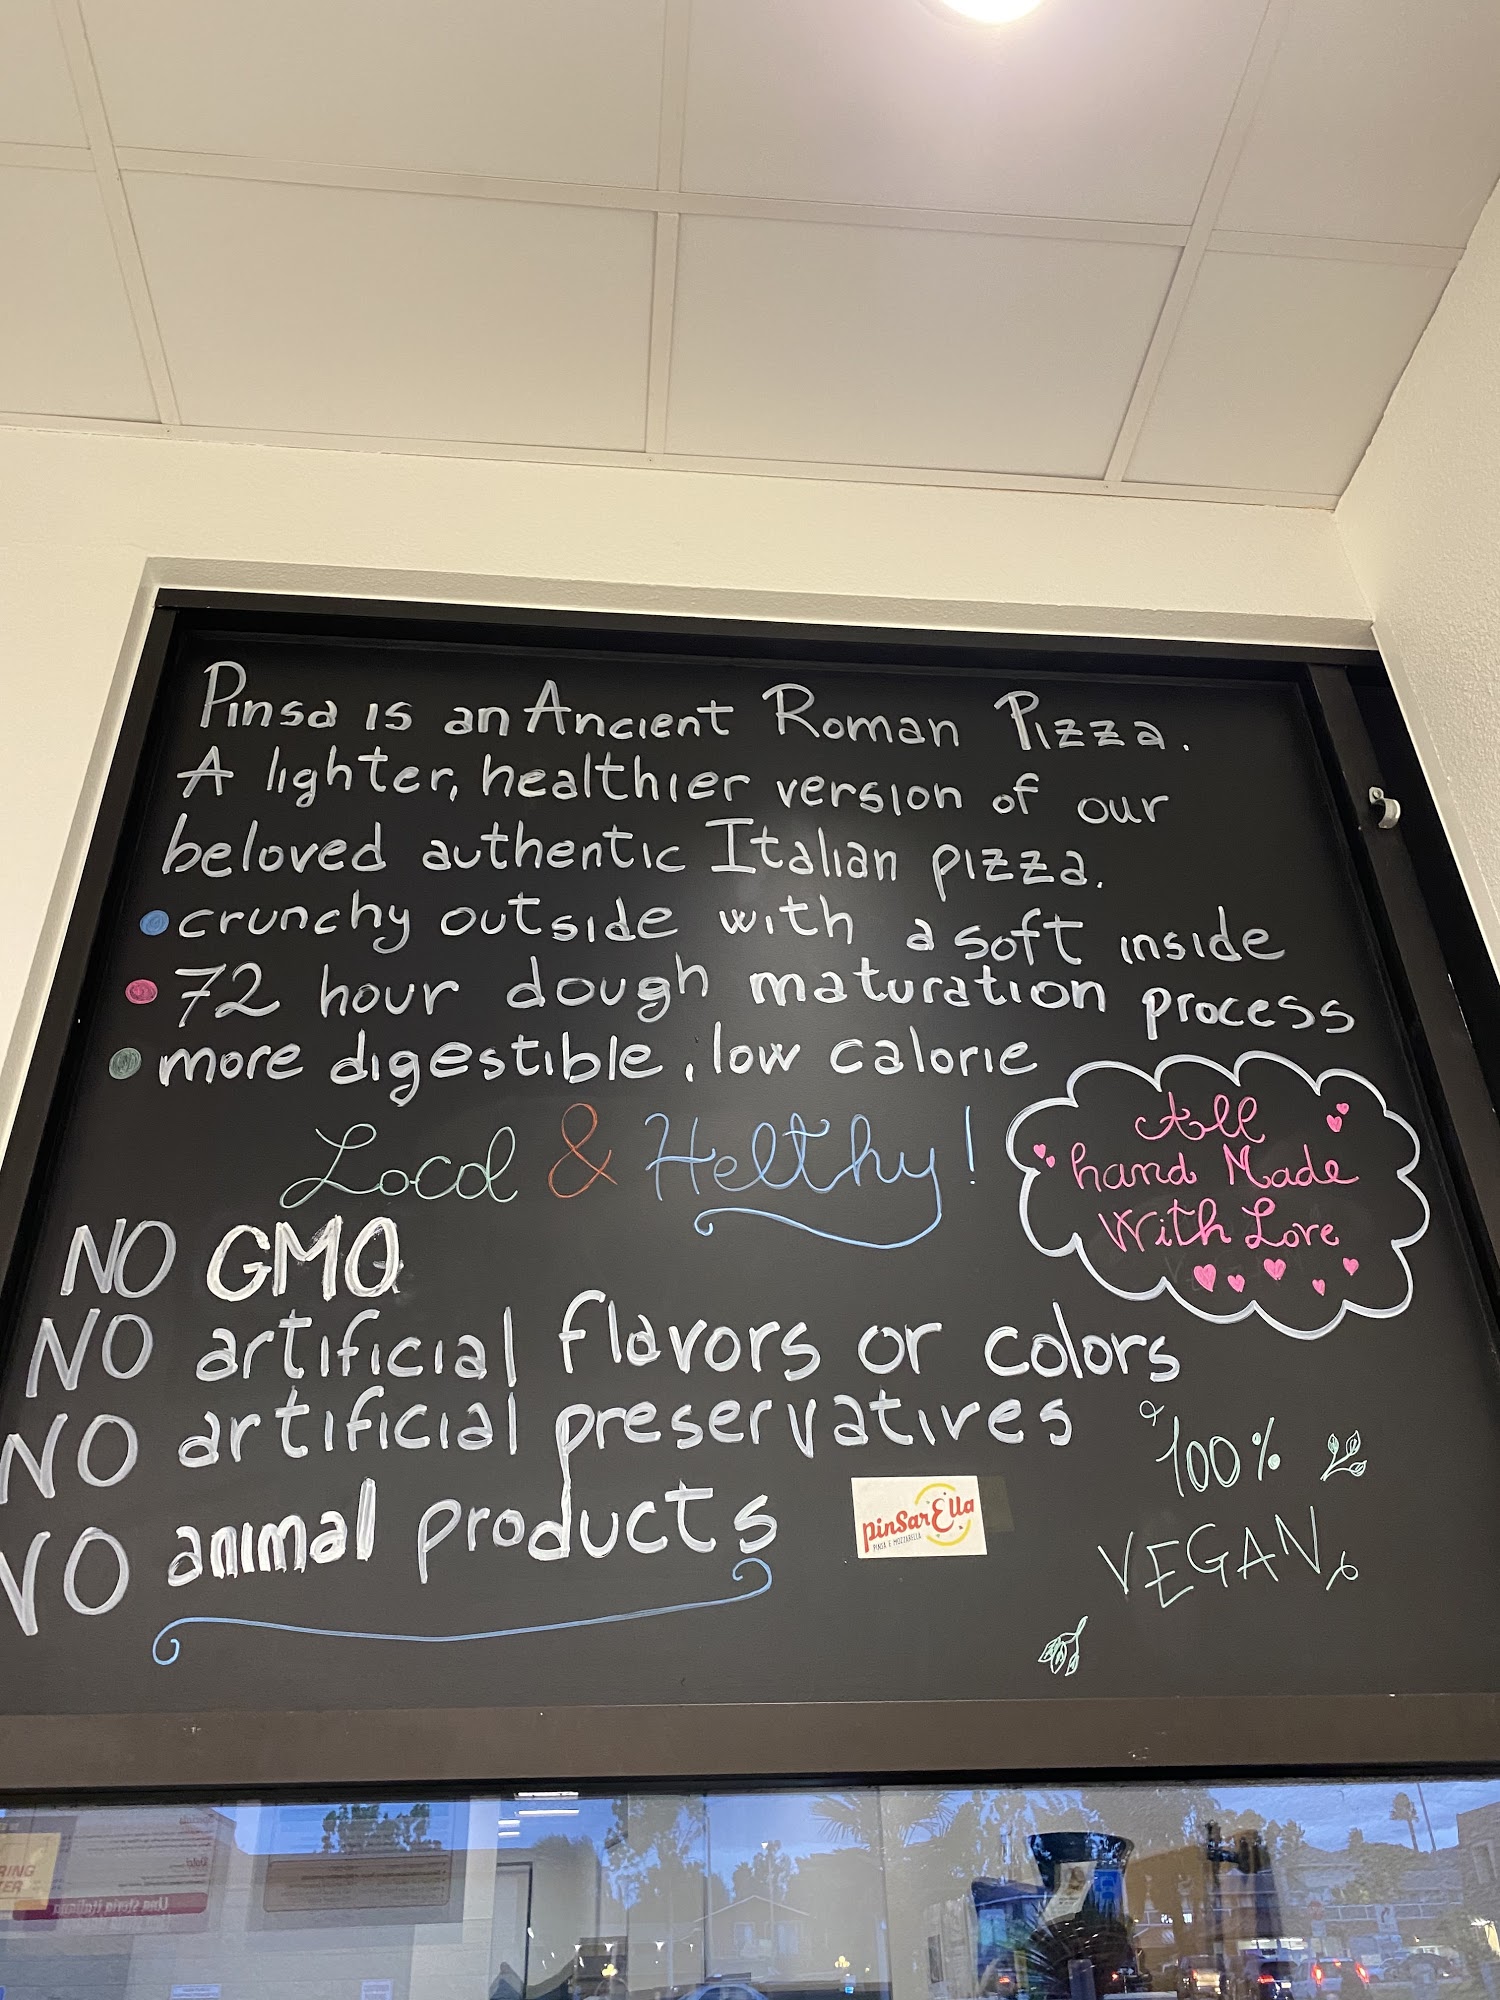 Pinsa is an Ancient Roman Pizza.
A lighter, healthier version of our
beloved authentic Italian pizza.
crunchy outside with a soft inside
72 hour dough maturation process
more digestible, low calorie
Local & Helthy!
All
hand Made
With Love
NO GMO
NO artificial flavors or colors
NO artificial preservatives
NO animal products
pinSarElla
PINSA E MOZZARELLA
100%
VEGAN
RING
TER
Una storia italiana